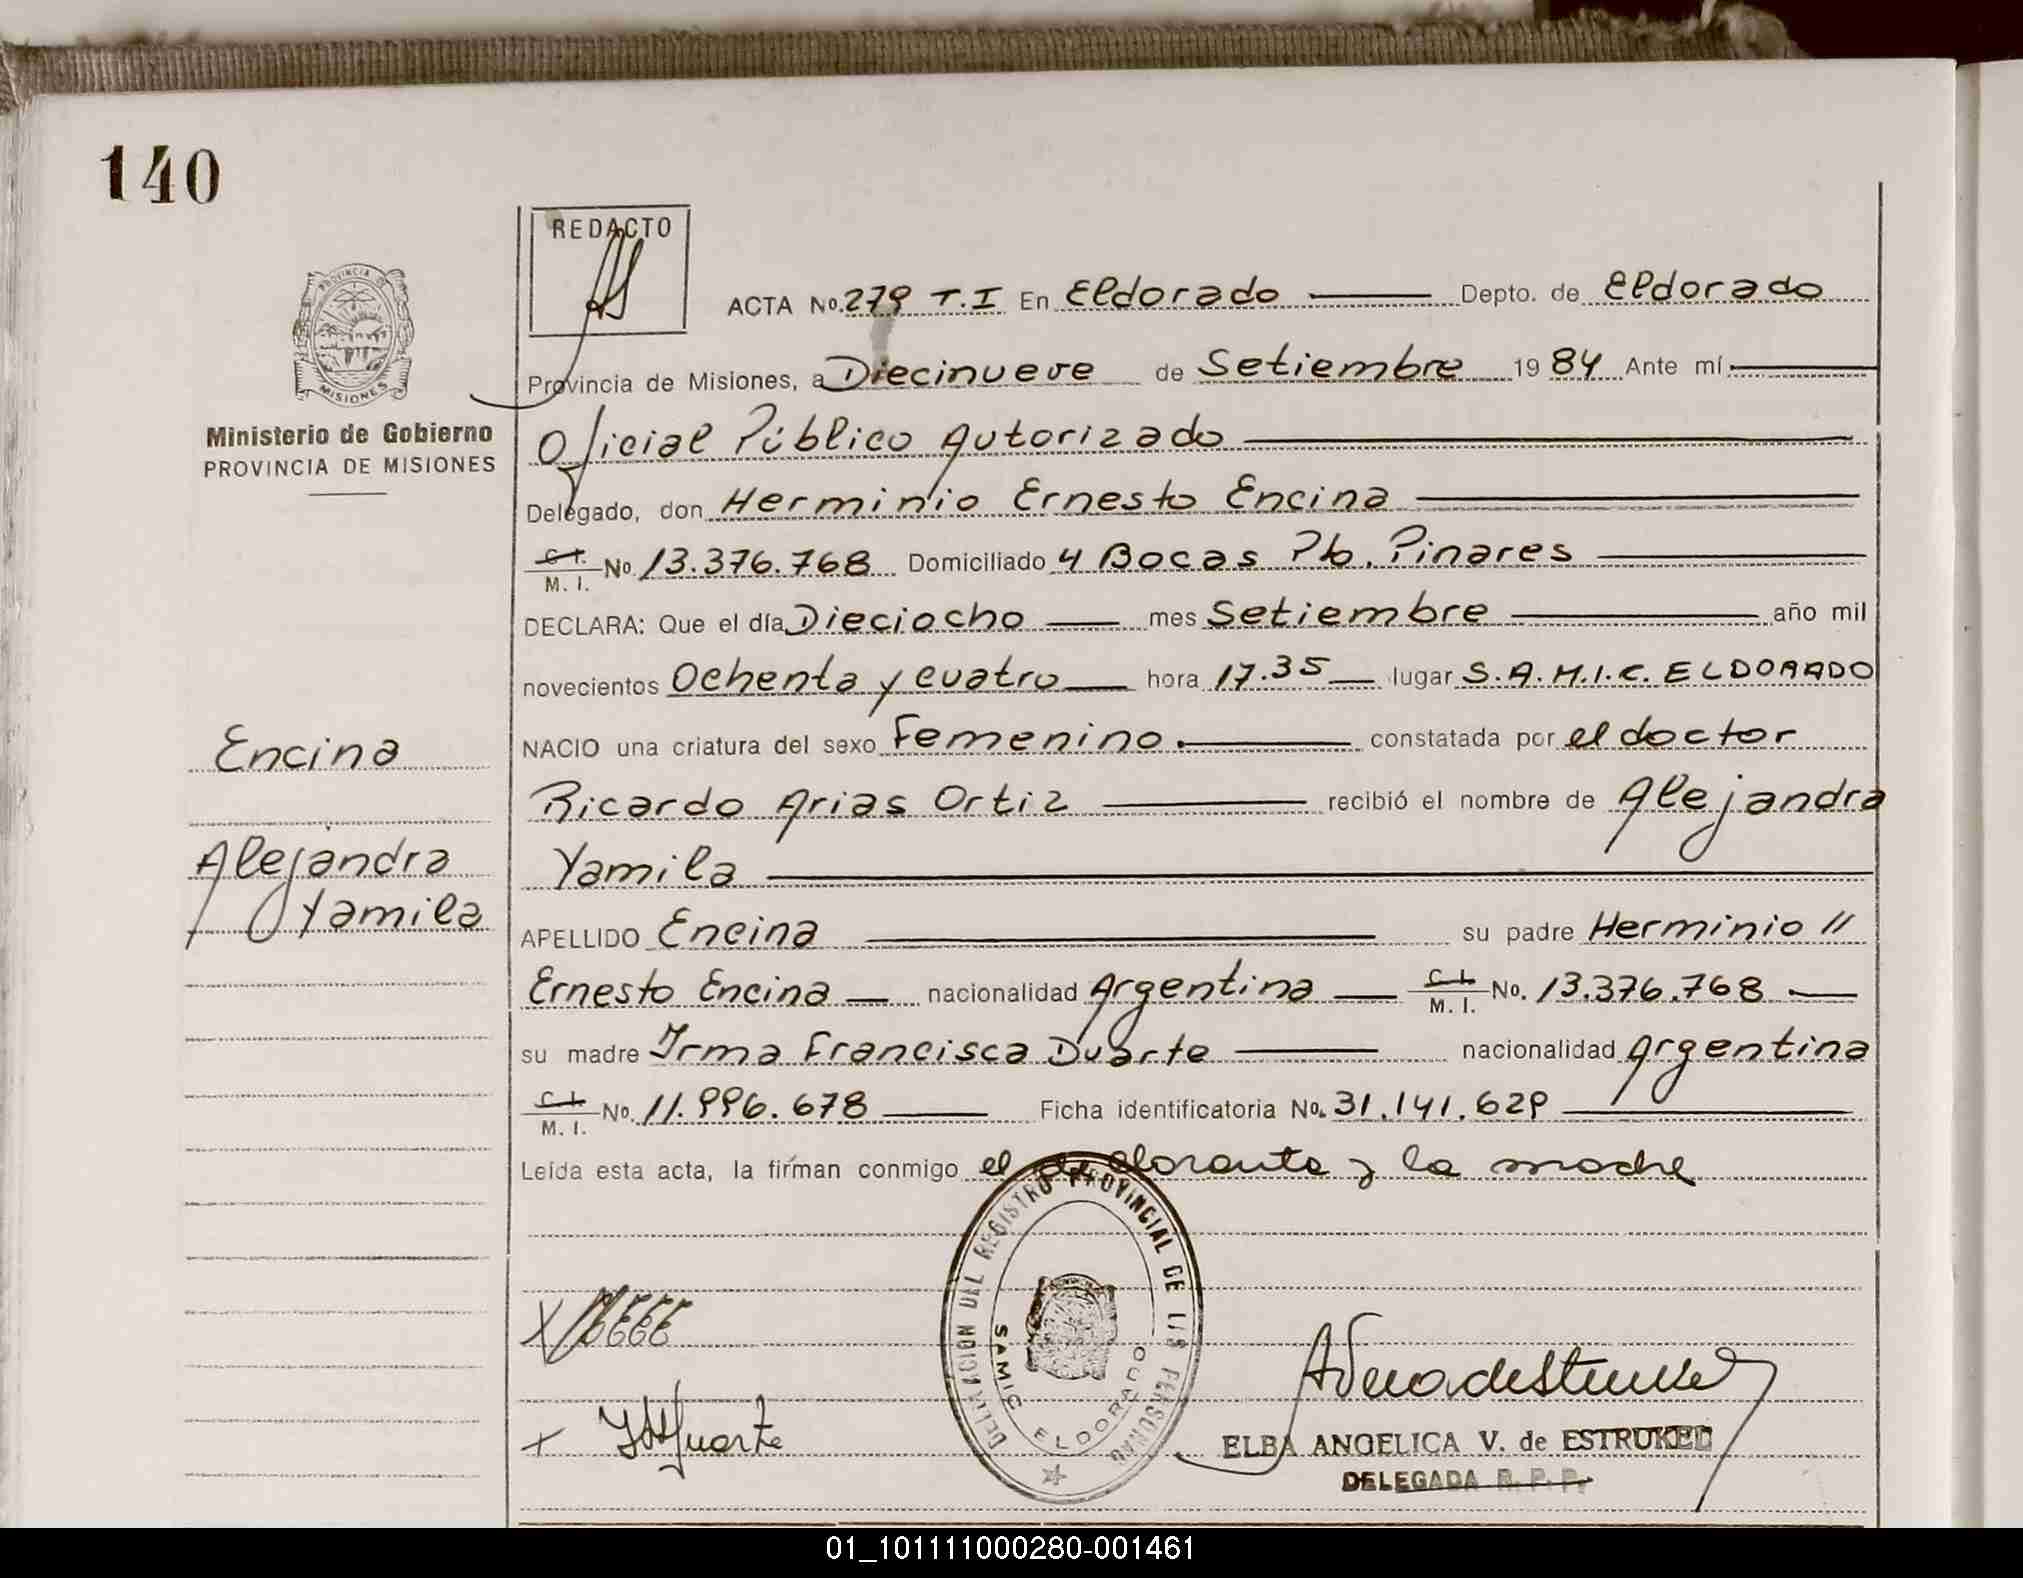 140
REDACTO
PROVINCIA DE
MISIONES
ACTA No. 279 T.I En Eldorado Depto. de Eldorado
Provincia de Misiones, a Diecinueve de Setiembre 1984 Ante mí
Ministerio de Gobierno
PROVINCIA DE MISIONES
Oficial Público Autorizado
Delegado, don Herminio Ernesto Encina
C.I. M.I. No 13.376.768 Domiciliado 4 Bocas Pto. Pinares
DECLARA: Que el día Dieciocho mes Setiembre año mil
novecientos Ochenta y cuatro hora 17.35 lugar S.A.M.I.C. ELDORADO
Encina
NACIO una criatura del sexo Femenino. constatada por el doctor
Ricardo Arias Ortiz recibió el nombre de Alejandra
Alejandra
Yamila
Yamila
APELLIDO Encina su padre Herminio //
Ernesto Encina nacionalidad Argentina C.I. M.I. No. 13.376.768
su madre Irma Francisca Duarte nacionalidad Argentina
C.I. M.I. No. 11.996.678 Ficha identificatoria No. 31.141.629
Leída esta acta, la firman conmigo el declarante y la madre
DELEGACION DEL REGISTRO PROVINCIAL DE LAS PERSONAS
SAMIC ELDORADO
ELBA ANGELICA V. de ESTRUKEL
DELEGADA R. P. P.
01_101111000280-001461